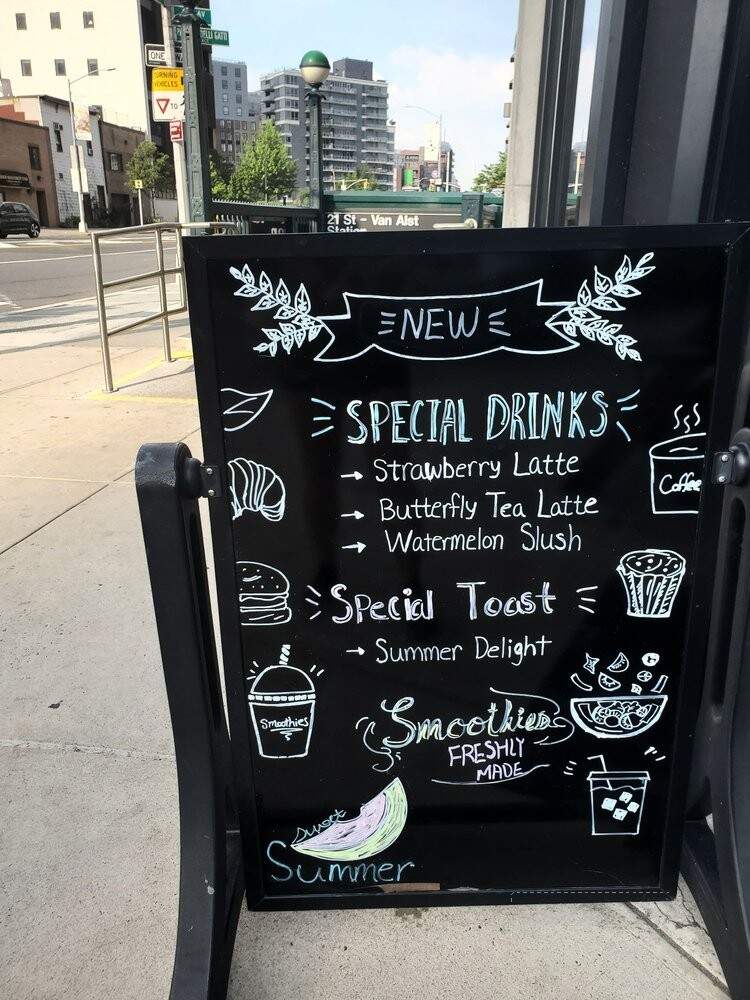 AV
ELLI GATTI
ONE
TURNING
VEHICLES
TO
21 St - Van Alst
Station
NEW
SPECIAL DRINKS
→ Strawberry Latte
→ Butterfly Tea Latte
→ Watermelon Slush
Coffee
Special Toast
→ Summer Delight
Smoothies
Smoothies
FRESHLY
MADE
sweet
Summer